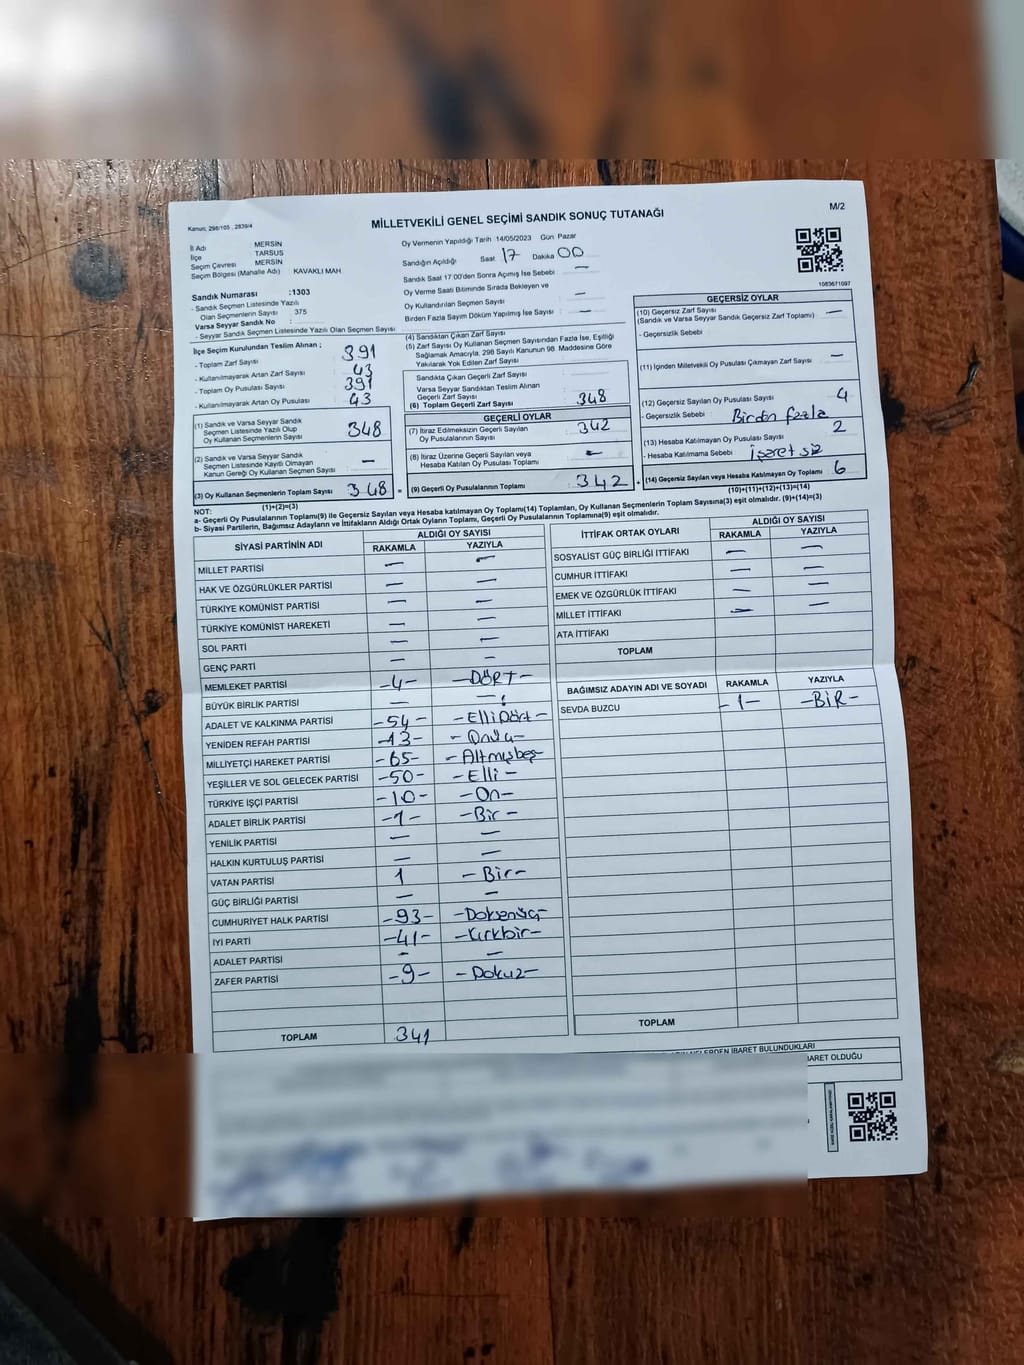 Kanun; 298/105 , 2839/4
MİLLETVEKİLİ GENEL SEÇİMİ SANDIK SONUÇ TUTANAĞI
M/2
İl Adı MERSİN
İlçe TARSUS
Seçim Çevresi MERSİN
Seçim Bölgesi (Mahalle Adı) KAVAKLI MAH
Sandık Numarası :1303
- Sandık Seçmen Listesinde Yazılı
Olan Seçmenlerin Sayısı 375
Varsa Seyyar Sandık No :
- Seyyar Sandık Seçmen Listesinde Yazılı Olan Seçmen Sayısı
Oy Vermenin Yapıldığı Tarih 14/05/2023 Gün Pazar
Sandığın Açıldığı Saat 17 Dakika 00
Sandık Saat 17 00'den Sonra Açımış İse Sebebi —
Oy Verme Saati Bitiminde Sırada Bekleyen ve
Oy Kullandırılan Seçmen Sayısı —
Birden Fazla Sayım Döküm Yapılmış İse Sayısı —
1083671097
İlçe Seçim Kurulundan Teslim Alınan ;
- Toplam Zarf Sayısı 391
- Kullanılmayarak Artan Zarf Sayısı 43
- Toplam Oy Pusulası Sayısı 391
- Kullanılmayarak Artan Oy Pusulası 43
(1) Sandık ve Varsa Seyyar Sandık
Seçmen Listesinde Yazılı Olup
Oy Kullanan Seçmenlerin Sayısı 348
(2) Sandık ve Varsa Seyyar Sandık
Seçmen Listesinde Kayıtlı Olmayan
Kanun Gereği Oy Kullanan Seçmen Sayısı —
(3) Oy Kullanan Seçmenlerin Toplam Sayısı 348 =
(1)+(2)=(3)
(4) Sandıktan Çıkan Zarf Sayısı
(5) Zarf Sayısı Oy Kullanan Seçmen Sayısından Fazla İse, Eşitliği
Sağlamak Amacıyla, 298 Sayılı Kanunun 98. Maddesine Göre
Yakılarak Yok Edilen Zarf Sayısı
Sandıkta Çıkan Geçerli Zarf Sayısı
Varsa Seyyar Sandıktan Teslim Alınan
Geçerli Zarf Sayısı
(6) Toplam Geçerli Zarf Sayısı 348
GEÇERLİ OYLAR
(7) İtiraz Edilmeksizin Geçerli Sayılan
Oy Pusulalarının Sayısı 342
(8) İtiraz Üzerine Geçerli Sayılan veya
Hesaba Katılan Oy Pusulası Toplamı —
(9) Geçerli Oy Pusulalarının Toplamı 342 +
GEÇERSİZ OYLAR
(10) Geçersiz Zarf Sayısı
(Sandık ve Varsa Seyyar Sandık Geçersiz Zarf Toplamı) —
- Geçersizlik Sebebi
(11) İçinden Milletvekili Oy Pusulası Çıkmayan Zarf Sayısı —
(12) Geçersiz Sayılan Oy Pusulası Sayısı 4
- Geçersizlik Sebebi : Birden fazla
(13) Hesaba Katılmayan Oy Pusulası Sayısı 2
- Hesaba Katılmama Sebebi işaretsiz
(14) Geçersiz Sayılan veya Hesaba Katılmayan Oy Toplamı 6
(10)+(11)+(12)+(13)=(14)
NOT:
a- Geçerli Oy Pusulalarının Toplamı(9) ile Geçersiz Sayılan veya Hesaba katılmayan Oy Toplamı(14) Toplamları, Oy Kullanan Seçmenlerin Toplam Sayısına(3) eşit olmalıdır. (9)+(14)=(3)
b- Siyasi Partilerin, Bağımsız Adayların ve İttifakların Aldığı Ortak Oyların Toplamı, Geçerli Oy Pusulalarının Toplamına(9) eşit olmalıdır.
SİYASİ PARTİNİN ADI ALDIĞI OY SAYISI
RAKAMLA YAZIYLA
MİLLET PARTİSİ — —
HAK VE ÖZGÜRLÜKLER PARTİSİ — —
TÜRKİYE KOMÜNİST PARTİSİ — —
TÜRKİYE KOMÜNİST HAREKETİ — —
SOL PARTİ — —
GENÇ PARTİ — —
MEMLEKET PARTİSİ -4- -DÖRT-
BÜYÜK BİRLİK PARTİSİ — —
ADALET VE KALKINMA PARTİSİ -54- -EllİDört-
YENİDEN REFAH PARTİSİ -13-
MİLLİYETÇİ HAREKET PARTİSİ -65- -Altmışbeş-
YEŞİLLER VE SOL GELECEK PARTİSİ -50- -Elli-
TÜRKİYE İŞÇİ PARTİSİ -10- -On-
ADALET BİRLİK PARTİSİ -1- -Bir-
YENİLİK PARTİSİ — —
HALKIN KURTULUŞ PARTİSİ — —
VATAN PARTİSİ 1 -Bir-
GÜÇ BİRLİĞİ PARTİSİ — —
CUMHURİYET HALK PARTİSİ -93- -Doksanüç-
İYİ PARTİ -41- -Kırkbir-
ADALET PARTİSİ — —
ZAFER PARTİSİ -9- -Dokuz-
TOPLAM 341
İTTİFAK ORTAK OYLARI ALDIĞI OY SAYISI
RAKAMLA YAZIYLA
SOSYALİST GÜÇ BİRLİĞİ İTTİFAKI — —
CUMHUR İTTİFAKI — —
EMEK VE ÖZGÜRLÜK İTTİFAKI — —
MİLLET İTTİFAKI — —
ATA İTTİFAKI
TOPLAM
BAĞIMSIZ ADAYIN ADI VE SOYADI RAKAMLA YAZIYLA
SEVDA BUZCU -1- -BİR-
TOPLAM
NELERDEN İBARET BULUNDUKLARI
BARET OLDUĞU